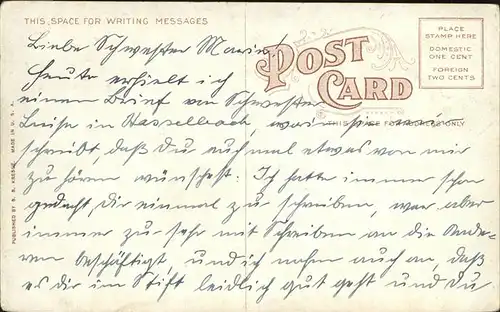 THIS SPACE FOR WRITING MESSAGES
POST CARD
PLACE
STAMP HERE
DOMESTIC
ONE CENT
FOREIGN
TWO CENTS
THIS SPACE FOR ADDRESS ONLY
Liebe Schwester Marie!
Heute erhielt ich
einen Brief von Schwester
Luise in Hasselbach, worin sie mir
schreibt, daß du auch mal etwas von mir
zu hören wünschest. Ich hatte immer schon
gedacht, dir einmal zu schreiben, war aber
immer zu sehr mit Schreiben an die Ande-
ren beschäftigt, und ich nahm auch an, daß
es dir im Stift leidlich gut geht und du